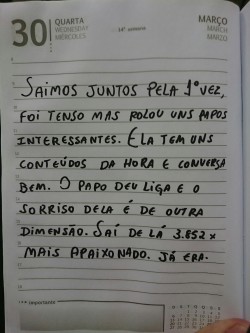 30
QUARTA
WEDNESDAY
MIÉRCOLES
14ª semana
MARÇO
MARCH
MARZO
SAIMOS JUNTOS PELA 1ª VEZ,
FOI TENSO MAS ROLOU UNS PAPOS
INTERESSANTES. ELA TEM UNS
CONTEÚDOS DA HORA E CONVERSA
BEM. O PAPO DEU LIGA E O
SORRISO DELA É DE OUTRA
DIMENSÃO. SAÍ DE LÁ 3.852 X
MAIS APAIXONADO. JÁ ERA.
Importante